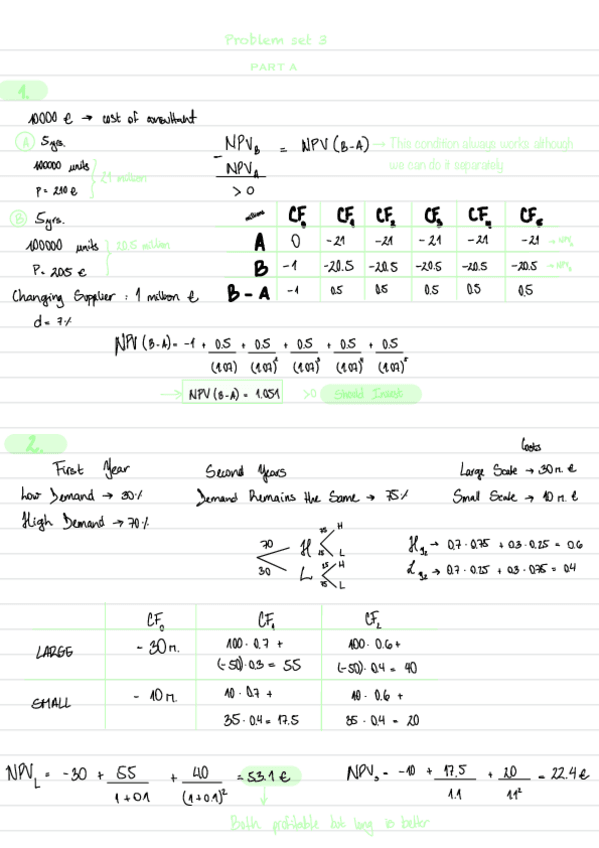 Problem set 3
PART A
1.
10000 € → cost of consultant
A 5yrs.
100000 units
P = 210 €
21 million
NPV_B - NPV_A > 0 = NPV (B-A) → This condition always works although
we can do it separately
B 5yrs.
100000 units
P = 205 €
20.5 million
Changing Supplier : 1 million €
d = 7%
millions CF₀ CF₁ CF₂ CF₃ CF₄ CF₅
A 0 -21 -21 -21 -21 -21 → NPV_A
B -1 -20.5 -20.5 -20.5 -20.5 -20.5 → NPV_B
B - A -1 0.5 0.5 0.5 0.5 0.5
NPV (B-A) = -1 + 0.5/(1.07) + 0.5/(1.07)² + 0.5/(1.07)³ + 0.5/(1.07)⁴ + 0.5/(1.07)⁵
→ NPV (B-A) = 1.051 >0 Should Invest
2.
First Year
Low Demand → 30%
High Demand → 70%
Second Years
Demand Remains the Same → 75%
Costs
Large Scale → 30m €
Small Scale → 10 m. €
70 H 75 H
25 L
30 L 25 H
75 L
H_y2 → 0.7 · 0.75 + 0.3 · 0.25 = 0.6
L_y2 → 0.7 · 0.25 + 0.3 · 0.75 = 0.4
CF₀ CF₁ CF₂
LARGE - 30m. 100 · 0.7 + 100 · 0.6 +
(-50) · 0.3 = 55 (-50) · 0.4 = 40
SMALL - 10m. 10 · 0.7 + 10 · 0.6 +
35 · 0.4 = 17.5 35 · 0.4 = 20
NPV_L = -30 + 55/1+0.1 + 40/(1+0.1)² = 53.1 €
NPV_s = -10 + 17.5/1.1 + 20/1.1² = 22.4 €
Both profitable but long is better